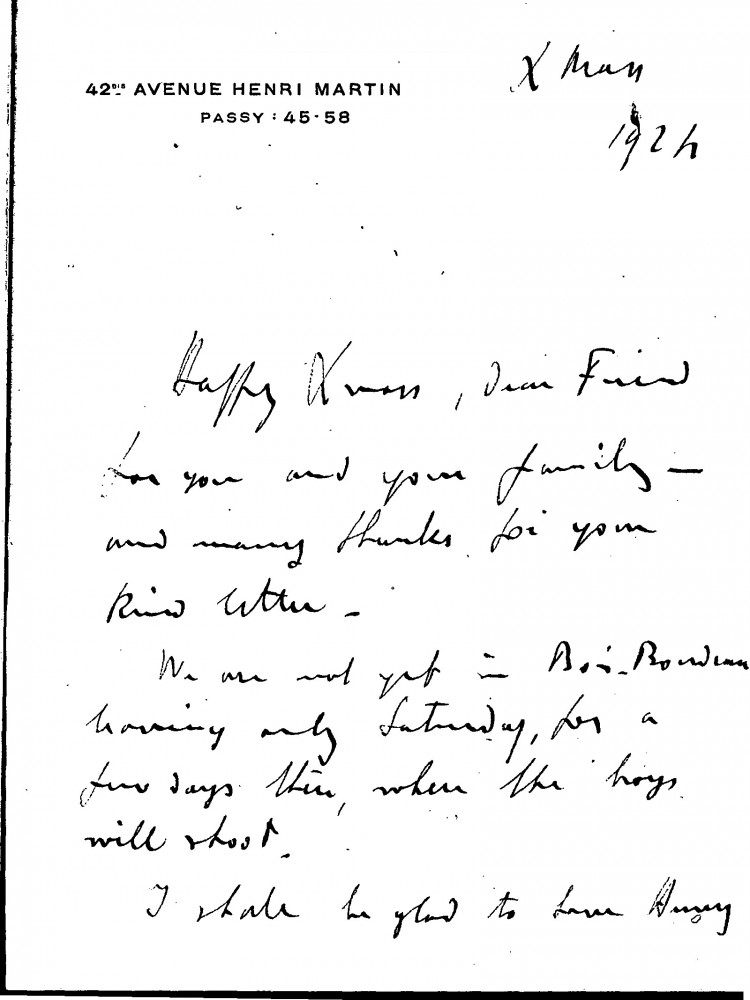 42BIS AVENUE HENRI MARTIN
PASSY : 45-58
X Mass
1924
Happy Xmass, dear Friend
for you and your family —
and many thanks for your
kind letter —
We are not yet in Bois-Boudran
leaving only Saturday, for a
few days there, where the boys
will shoot.
I shall be glad to have